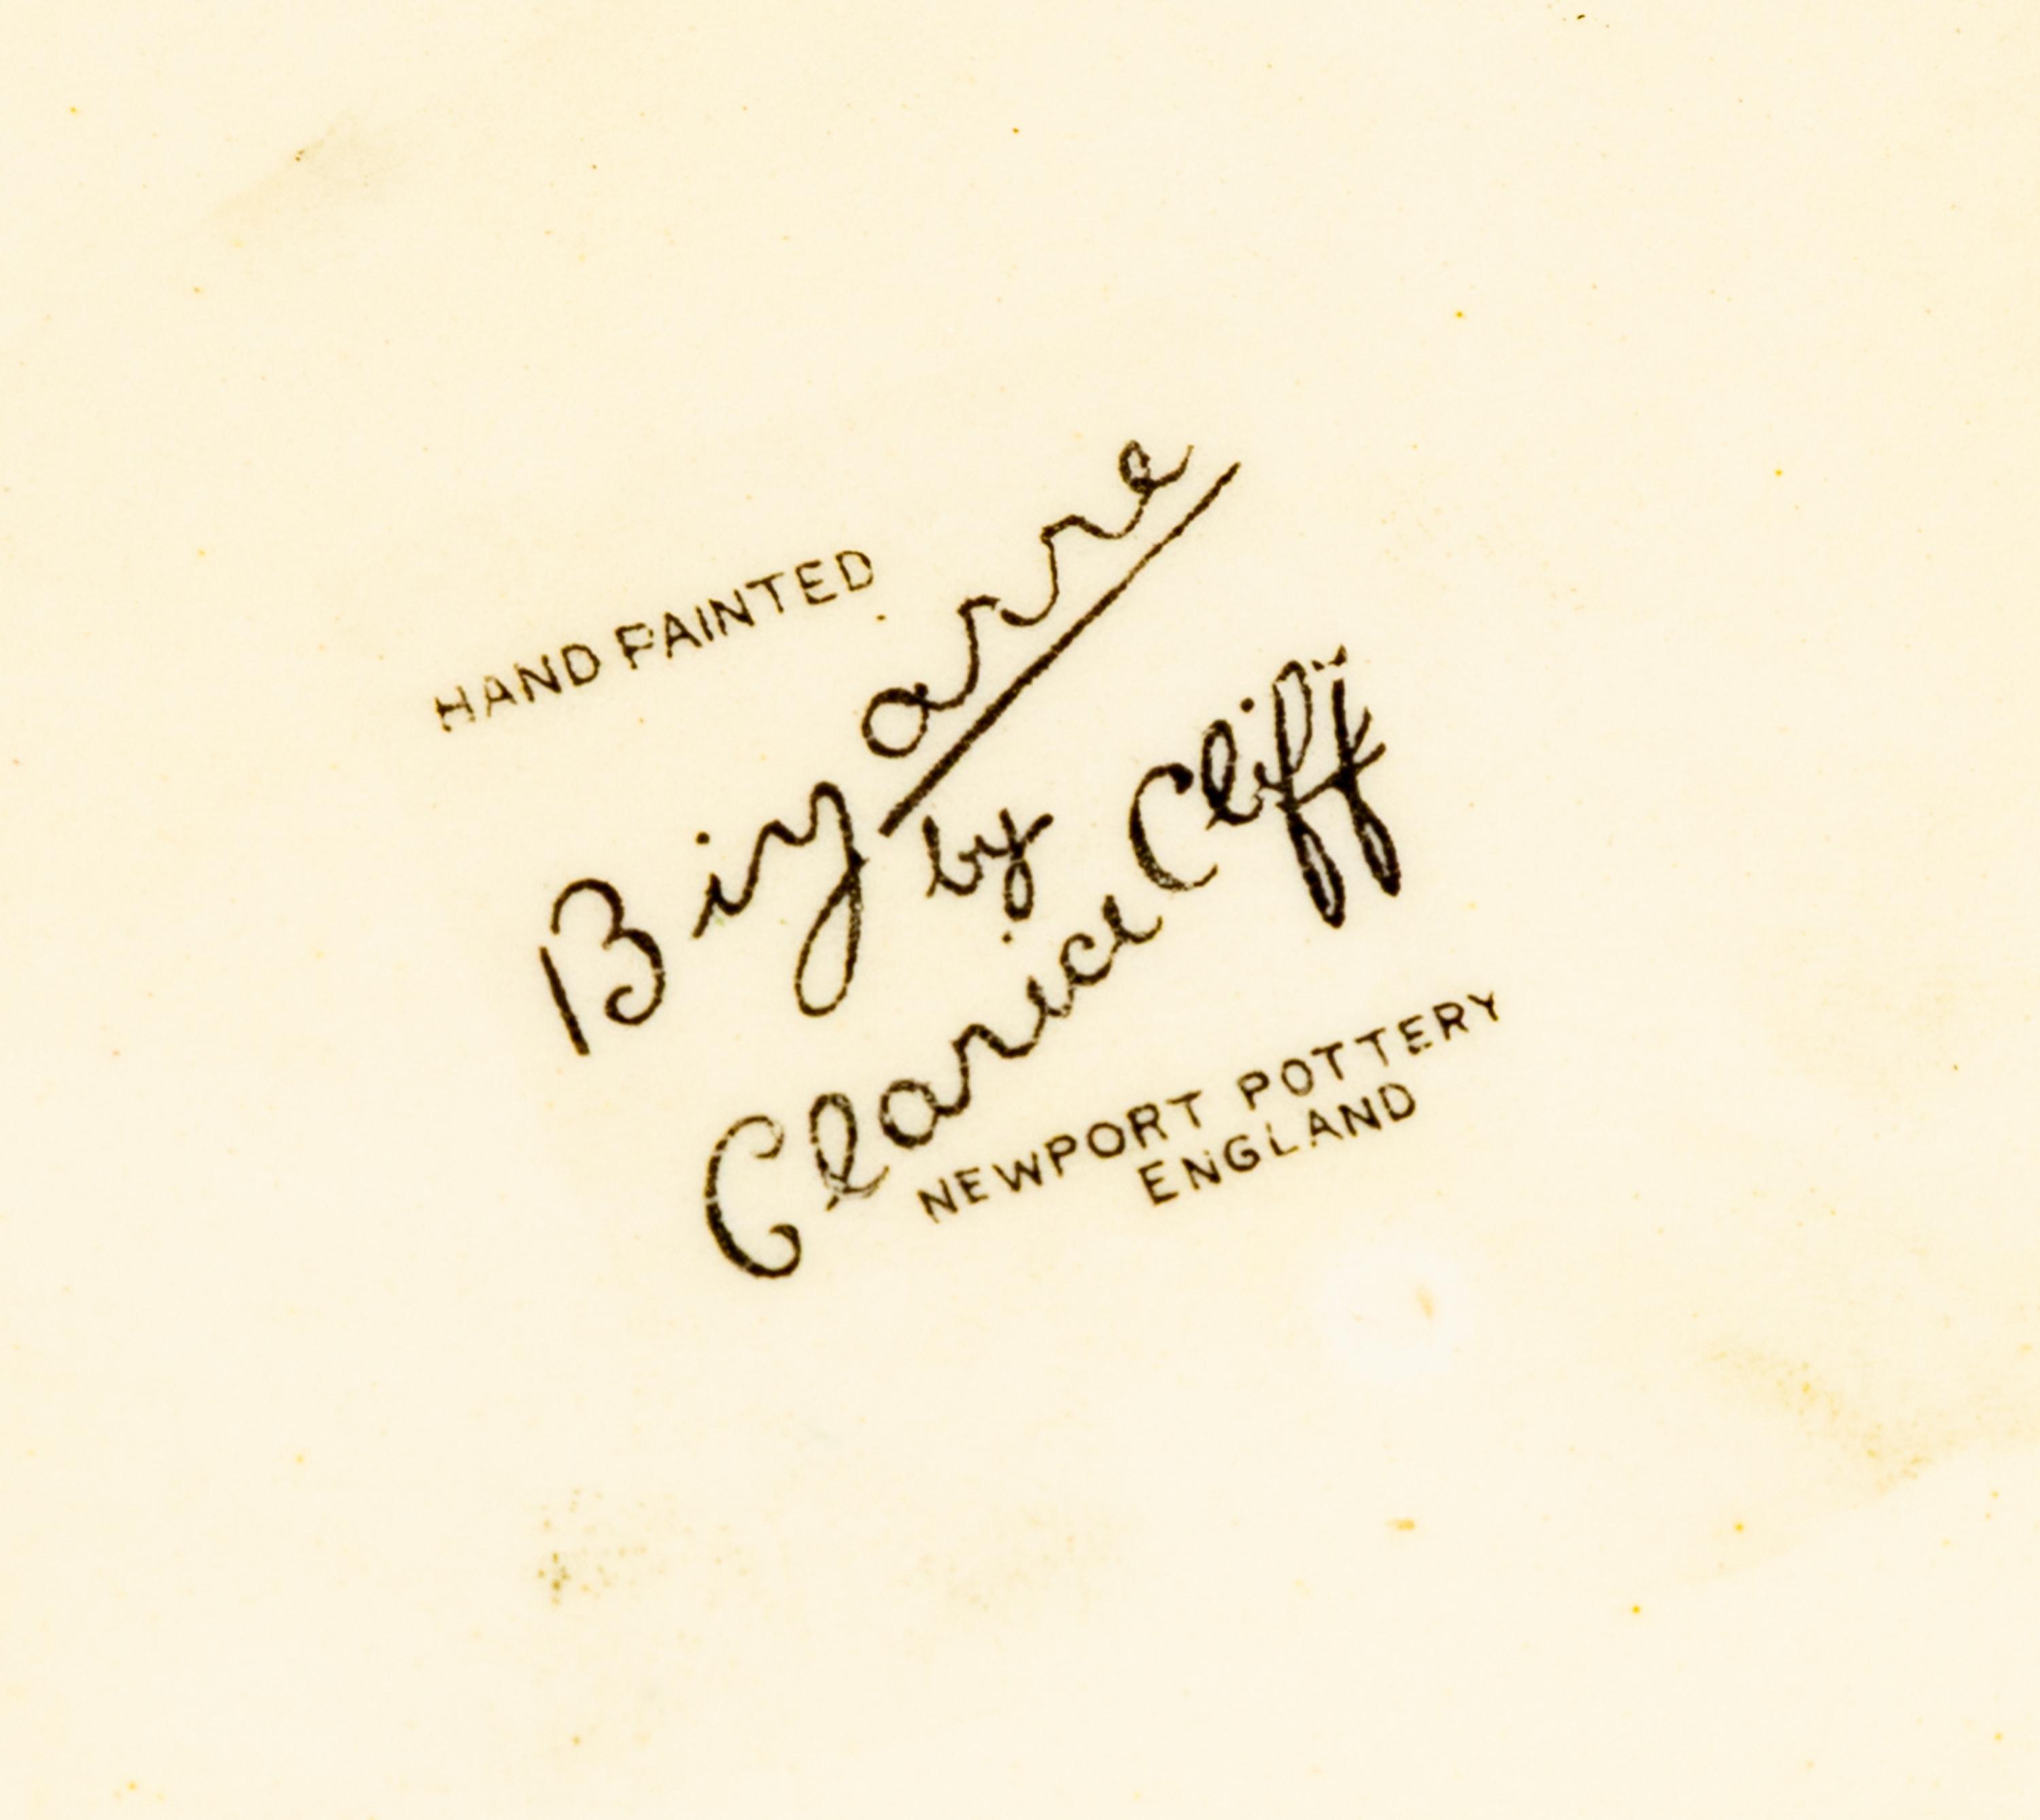 HAND PAINTED
Bizarre
by
Clarice Cliff
NEWPORT POTTERY
ENGLAND